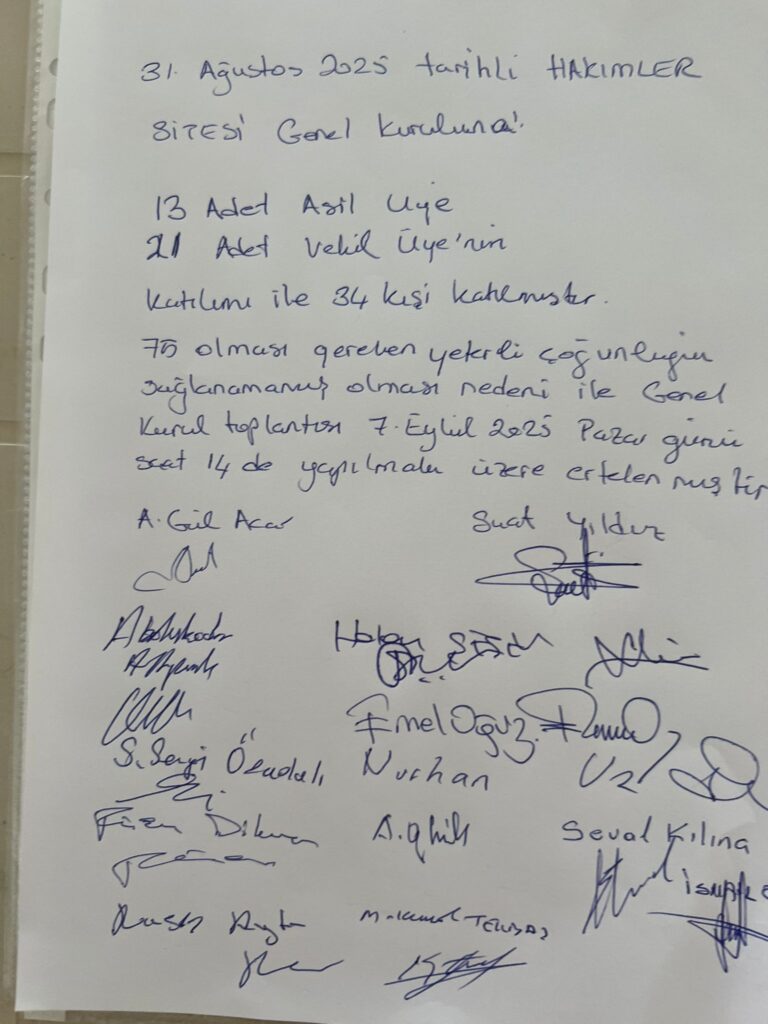 31. Ağustos 2025 tarihli HAKIMLER
SİTESİ Genel Kuruluna
13 Adet Asil Üye
21 Adet Vekil Üye'nin
Katılımı ile 34 kişi katılmıştır.
75 olması gereken yeterli çoğunluğun
sağlanamamış olması nedeni ile Genel
Kurul toplantısı 7. Eylül 2025 Pazar günü
saat 14 de yapılmak üzere ertelenmiştir
A. Gül Acar Suat Yıldız
Hakan
Emel Oğuz
S. Sevgi Nurhan Uz
Füsun Dikmen Seval Kılınç
İsmail
M. Kemal